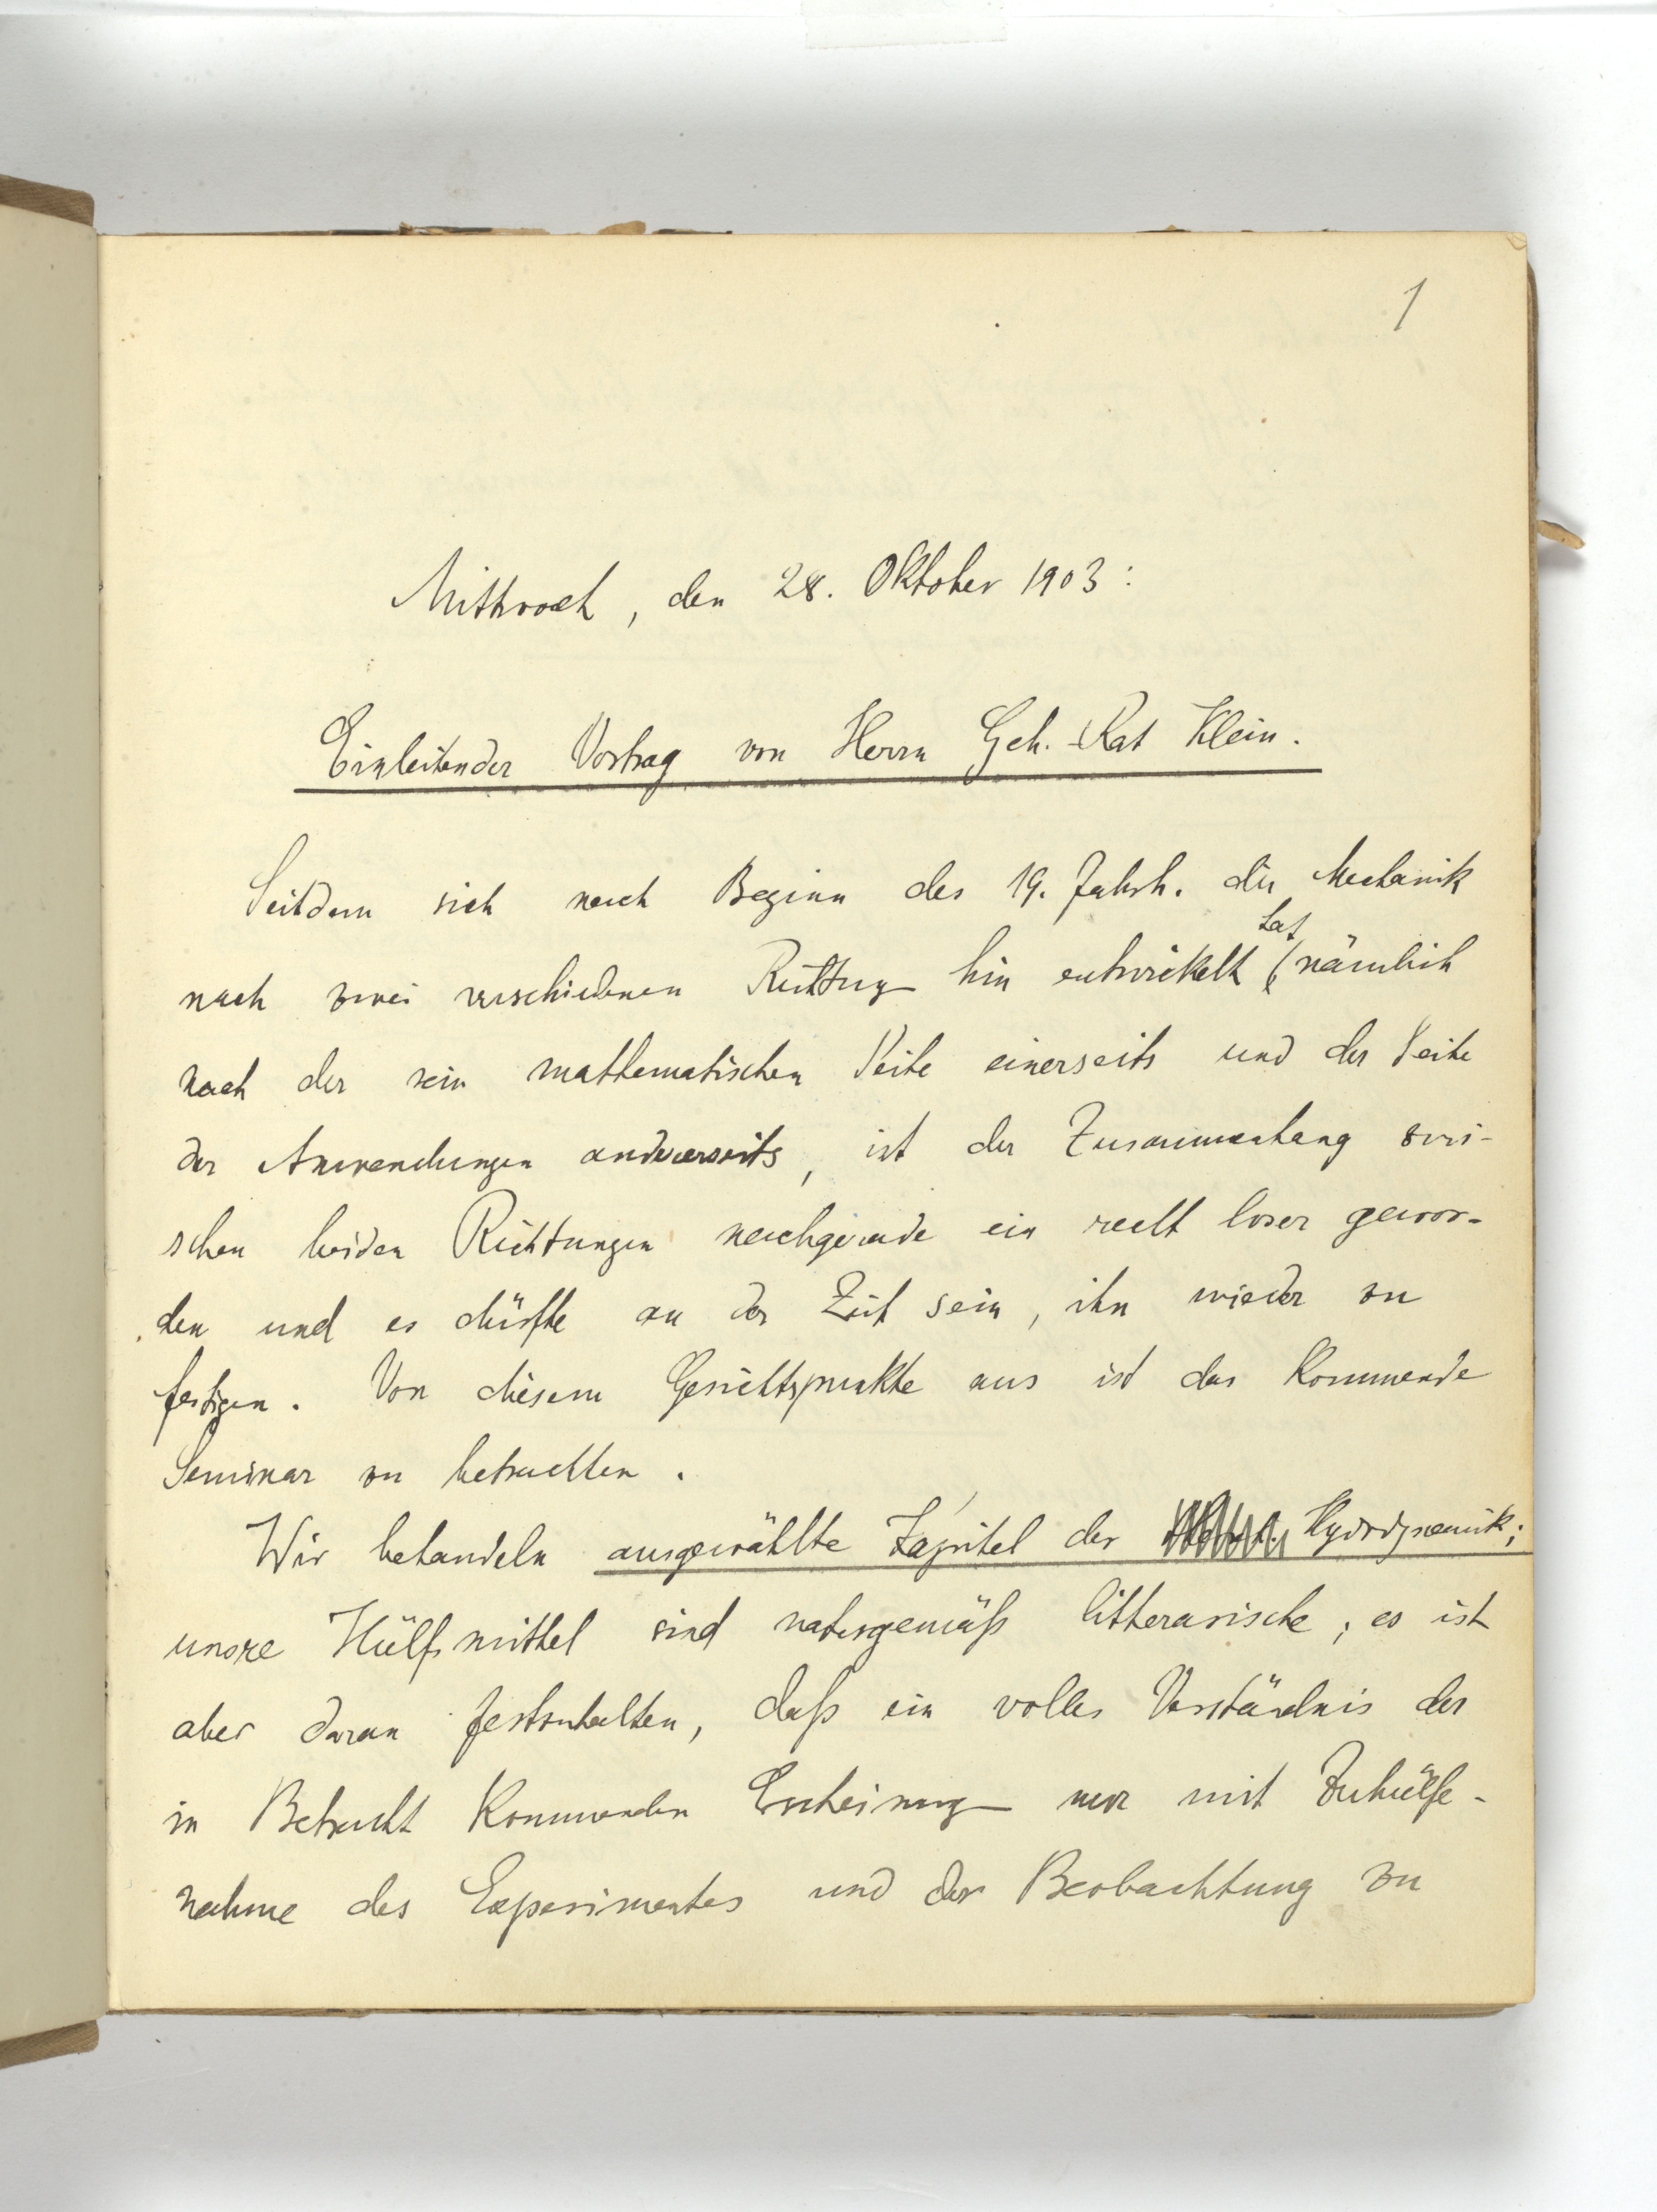 1
Mittwoch, den 28. Oktober 1903:
Einleitender Vortrag von Herrn Geh. Rat Klein.
Seitdem sich nach Beginn des 19. Jahrh. die Mechanik
hat
nach zwei verschiedenen Richtung hin entwickelt (nämlich
nach der rein mathematischen Seite einerseits und der Seite
der Anwendungen andererseits, ist der Zusammenhang zwi-
schen beiden Richtungen nachgerade ein recht loser gewor-
den und es dürfte an der Zeit sein, ihn wieder zu
festigen. Von diesem Gesichtspunkte aus ist das kommende
Seminar zu betrachten.
Wir behandeln ausgewählte Kapitel der Hydrodynamik;
unsre Hülfsmittel sind naturgemäß litterarische; es ist
aber daran festzuhalten, daß ein volles Verständnis der
in Betracht kommenden Erscheinung nur mit Zuhülfe-
nahme des Experimentes und der Beobachtung zu